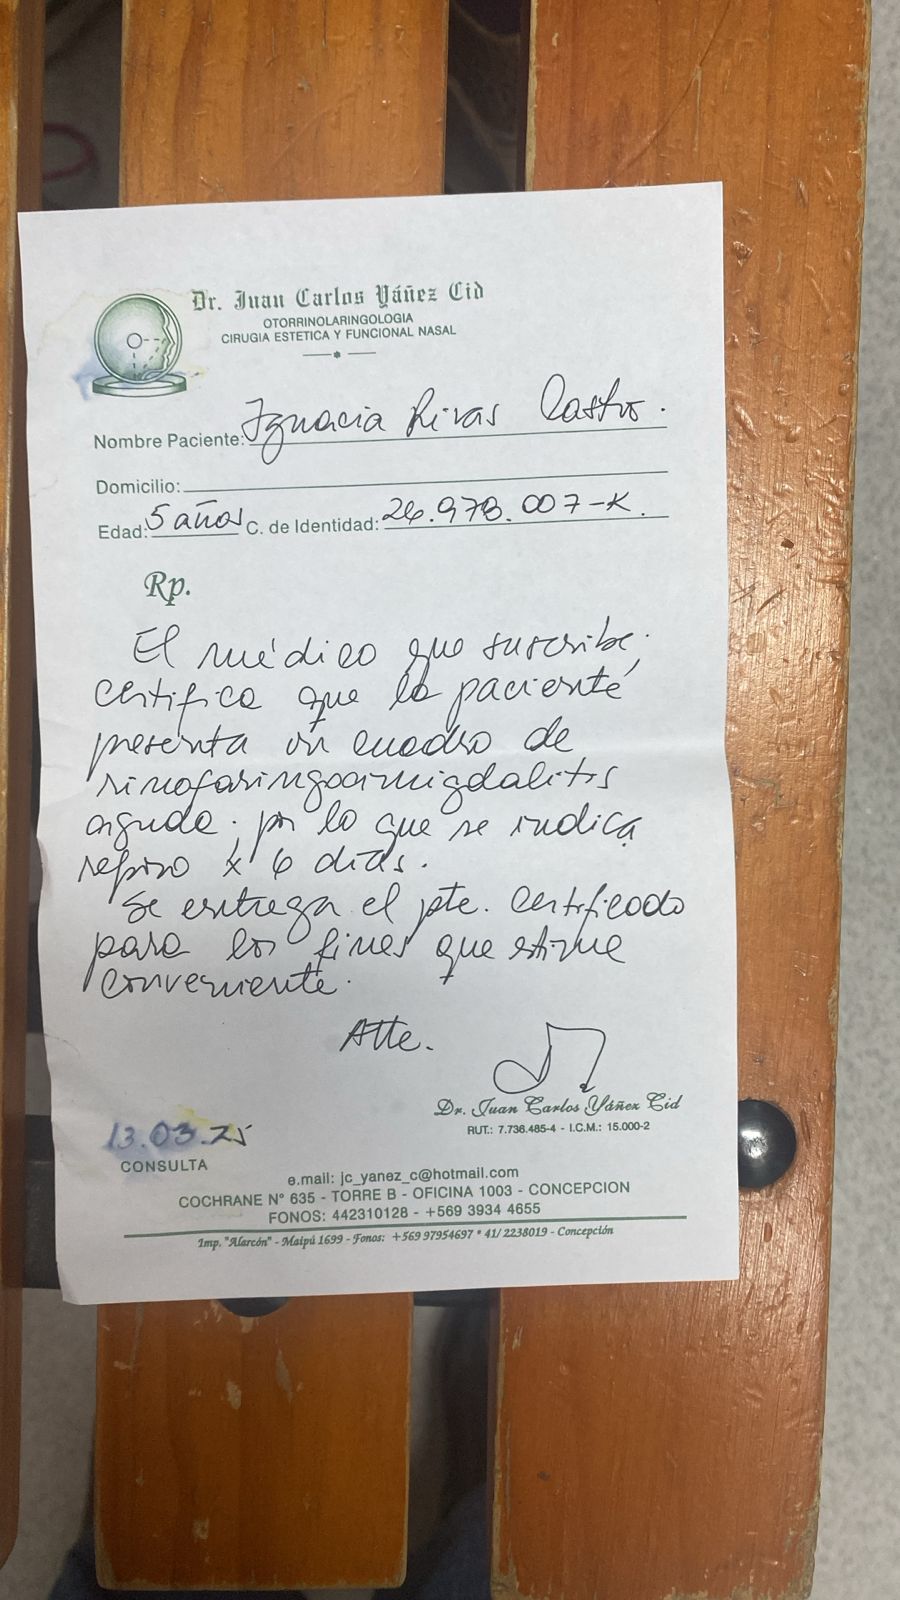 Dr. Juan Carlos Yáñez Cid
OTORRINOLARINGOLOGIA
CIRUGIA ESTETICA Y FUNCIONAL NASAL
Nombre Paciente: Ignacia Rivas Castro.
Domicilio:
Edad: 5 años C. de Identidad: 26.978.007-K.
Rp.
El médico que suscribe,
certifica que la paciente
presenta un cuadro de
rinofaringoamigdalitis
aguda. por lo que se indica
reposo x 6 días.
Se entrega el pte. certificado
para los fines que estime
conveniente.
Atte.
Dr. Juan Carlos Yáñez Cid
RUT.: 7.736.485-4 - I.C.M.: 15.000-2
13.03.25
CONSULTA
e.mail: jc_yanez_c@hotmail.com
COCHRANE N° 635 - TORRE B - OFICINA 1003 - CONCEPCION
FONOS: 442310128 - +569 3934 4655
Imp. "Alarcón" - Maipú 1699 - Fonos: +569 97954697 * 41/ 2238019 - Concepción